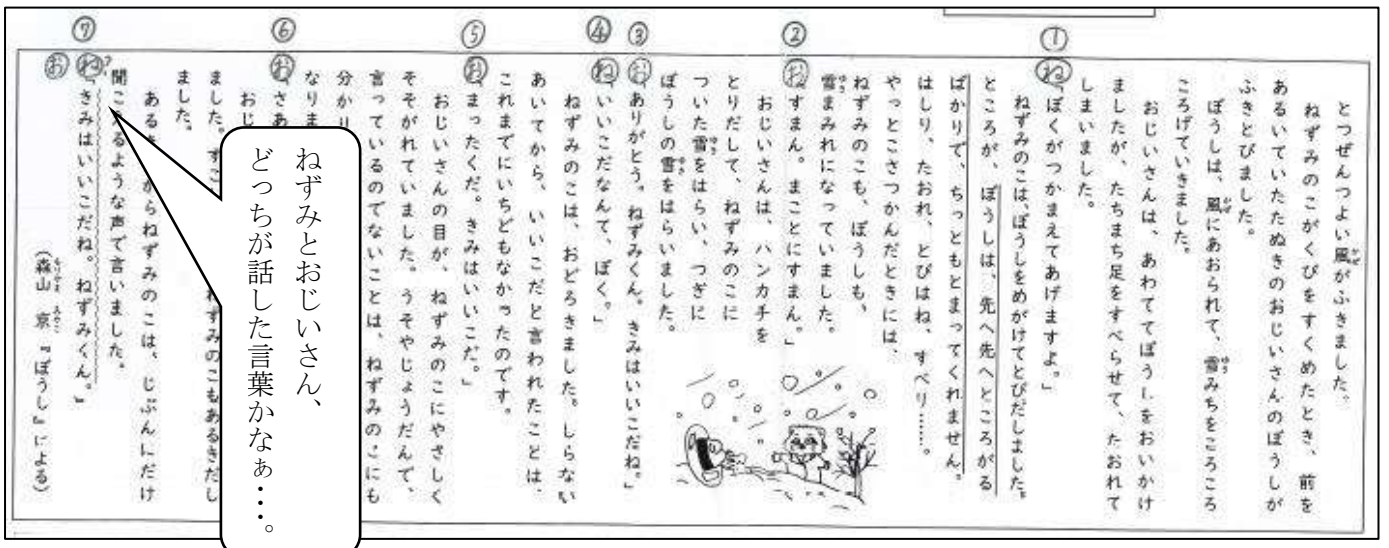 とつぜんつよい風がふきました。
ねずみのこがくびをすくめたとき、前を
あるいていたたぬきのおじいさんのぼうしが
ふきとびました。
ぼうしは、風にあおられて、雪みちをころころ
ころげていきました。
おじいさんは、あわててぼうしをおいかけ
ましたが、たちまち足をすべらせて、たおれて
しまいました。
① ね「ぼくがつかまえてあげますよ。」
ねずみのこは、ぼうしをめがけてとびだしました。
ところが、ぼうしは、先へ先へところがる
ばかりで、ちっともとまってくれません。
はしり、たおれ、とびはね、すべり……。
やっとこさつかんだときには、
ねずみのこも、ぼうしも、
雪まみれになっていました。
② お「すまん。まことにすまん。」
おじいさんは、ハンカチを
とりだして、ねずみのこに
ついた雪をはらい、つぎに
ぼうしの雪をはらいました。
③ お「ありがとう。ねずみくん。きみはいいこだね。」
④ ね「いいこだなんて、ぼく。」
ねずみのこは、おどろきました。しらない
あいてから、いいこだと言われたことは、
これまでにいちどもなかったのです。
⑤ お「まったくだ。きみはいいこだ。」
おじいさんの目が、ねずみのこにやさしく
そそがれていました。うそやじょうだんで、
言っているのでないことは、ねずみのこにも
分かり
なりま
⑥ お「さあ
おじ
ました。すこ ねずみのこもあるきだし
ました。
ある からねずみのこは、じぶんにだけ
聞こえるような声で言いました。
⑦ ね? お「きみはいいこだね。ねずみくん。」
(森山 京『ぼうし』による)
ねずみとおじいさん、
どっちが話した言葉かなぁ・・・。